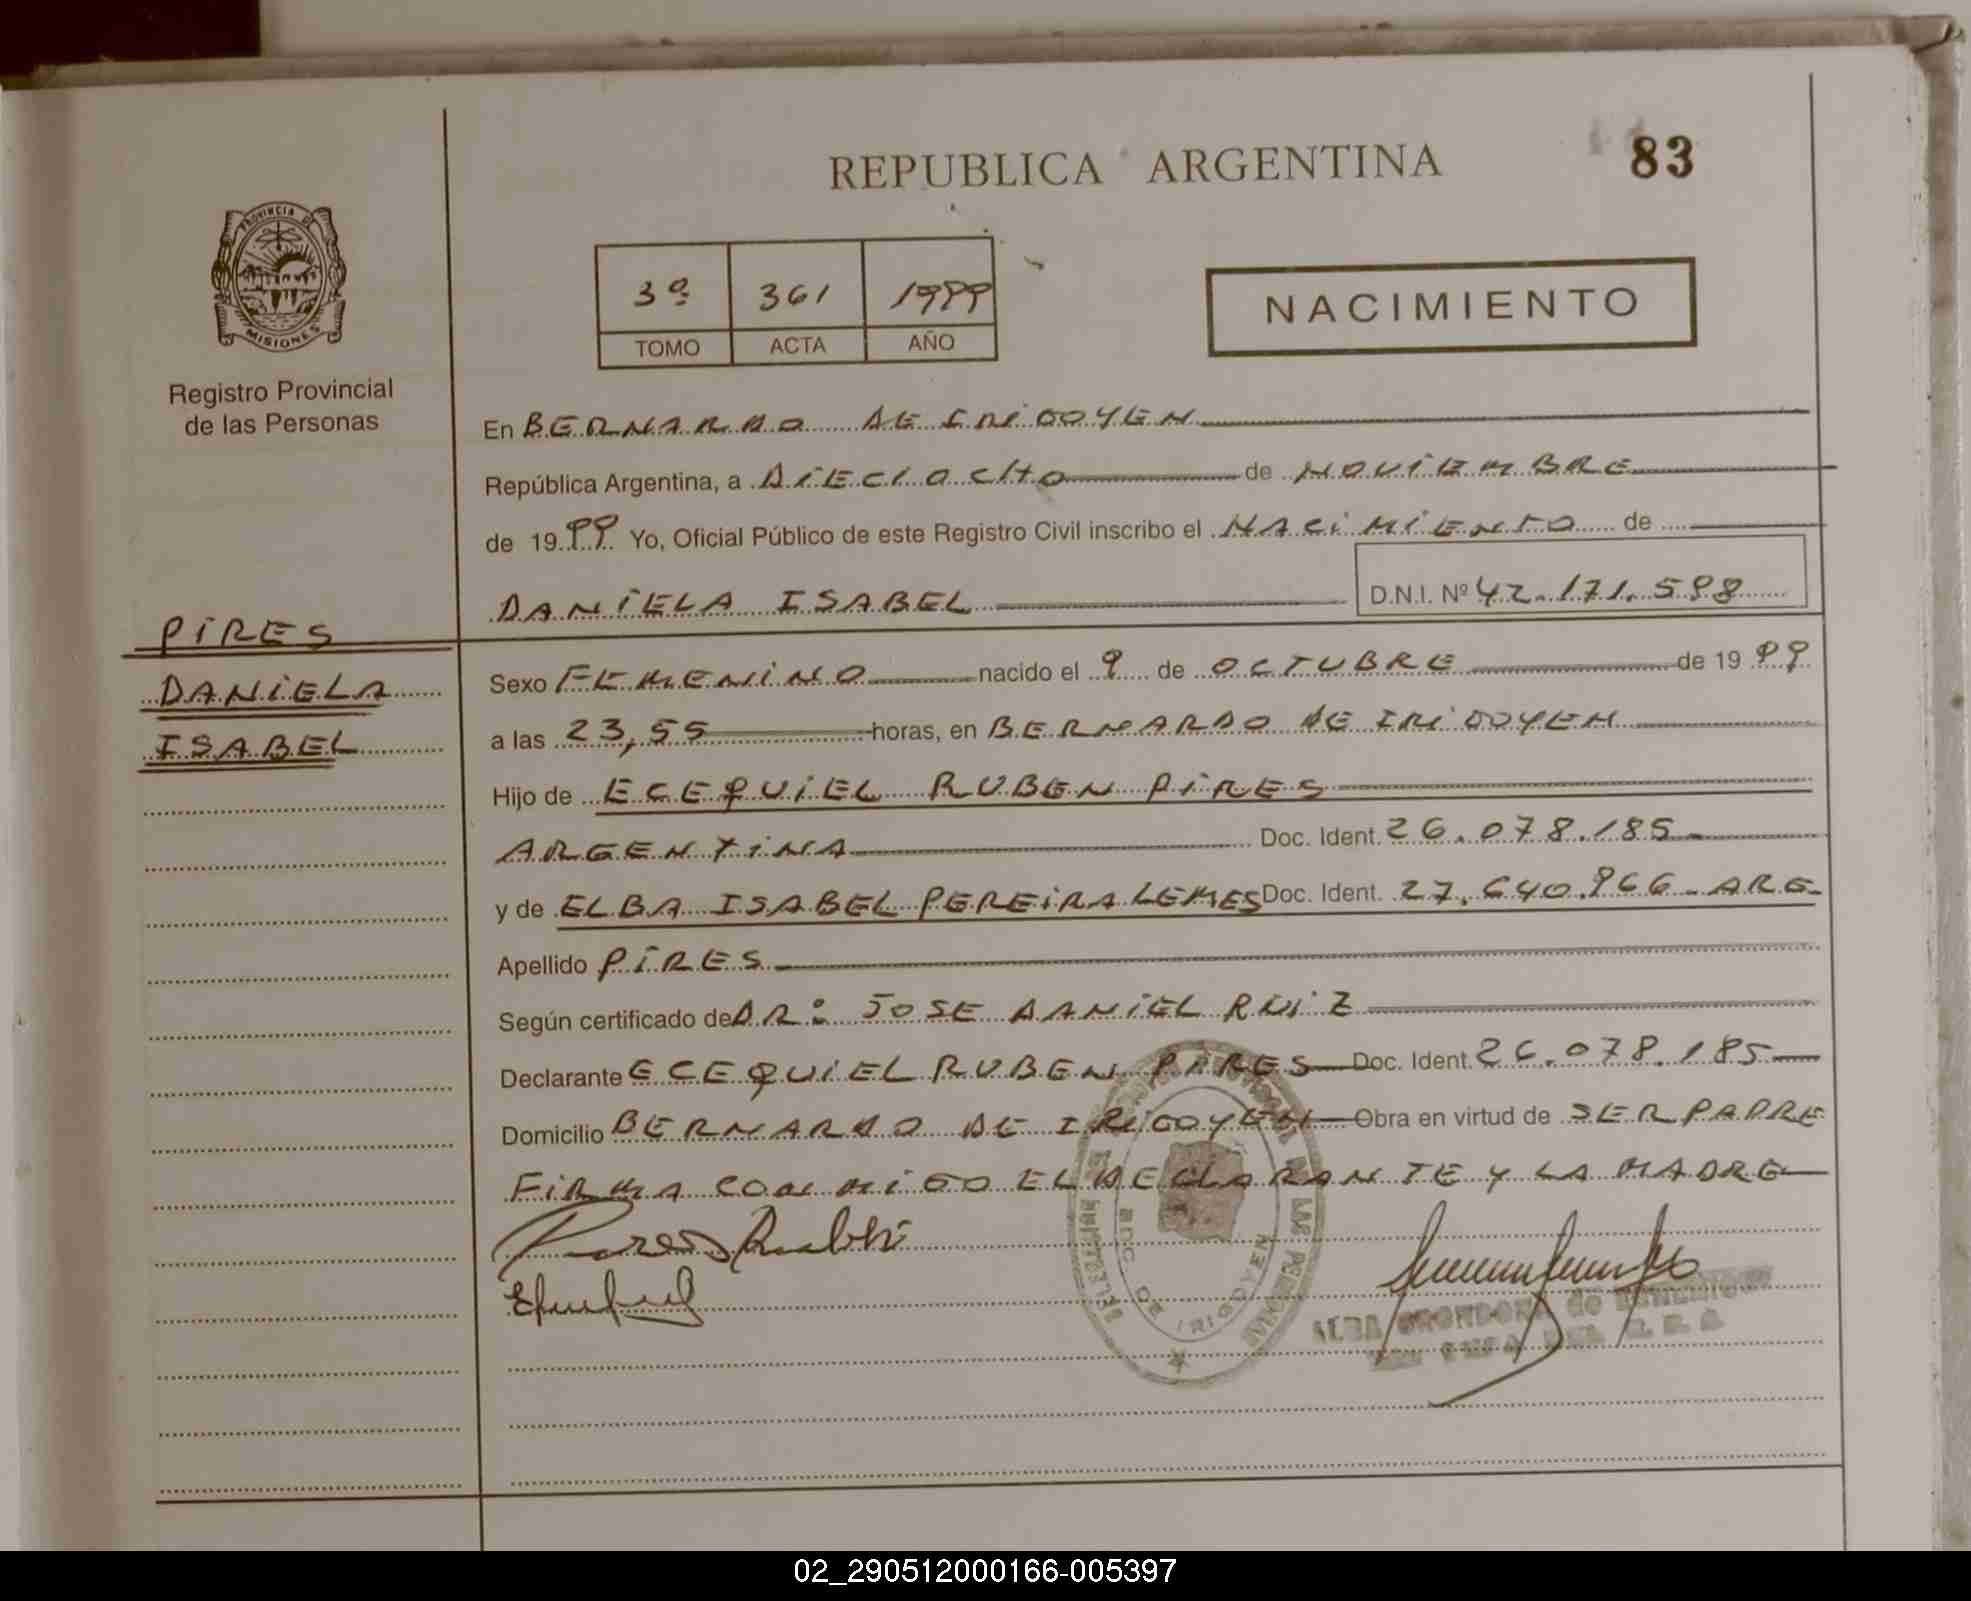 REPUBLICA ARGENTINA
83
PROVINCIA DE
MISIONES
Registro Provincial
de las Personas
3º 361 1999
TOMO ACTA AÑO
NACIMIENTO
En BERNARDO DE IRIGOYEN
República Argentina, a DIECIOCHO de NOVIEMBRE
de 1999 Yo, Oficial Público de este Registro Civil inscribo el NACIMIENTO de
DANIELA ISABEL D.N.I. Nº 42.171.598
PIRES
DANIELA
ISABEL
Sexo FEMENINO nacido el 9 de OCTUBRE de 1999
a las 23,55 horas, en BERNARDO DE IRIGOYEN
Hijo de ECEQUIEL RUBEN PIRES
ARGENTINA Doc. Ident. 26.078.185
y de ELBA ISABEL PEREIRA LEMES Doc. Ident. 27.640.966 - ARG.
Apellido PIRES
Según certificado de DR: JOSE DANIEL RUIZ
Declarante ECEQUIEL RUBEN PIRES Doc. Ident. 26.078.185
Domicilio BERNARDO DE IRIGOYEN Obra en virtud de SER PADRE
FIRMA CONMIGO EL DECLARANTE Y LA MADRE
BDO DE IRIGOYEN
ALBA de
02_290512000166-005397